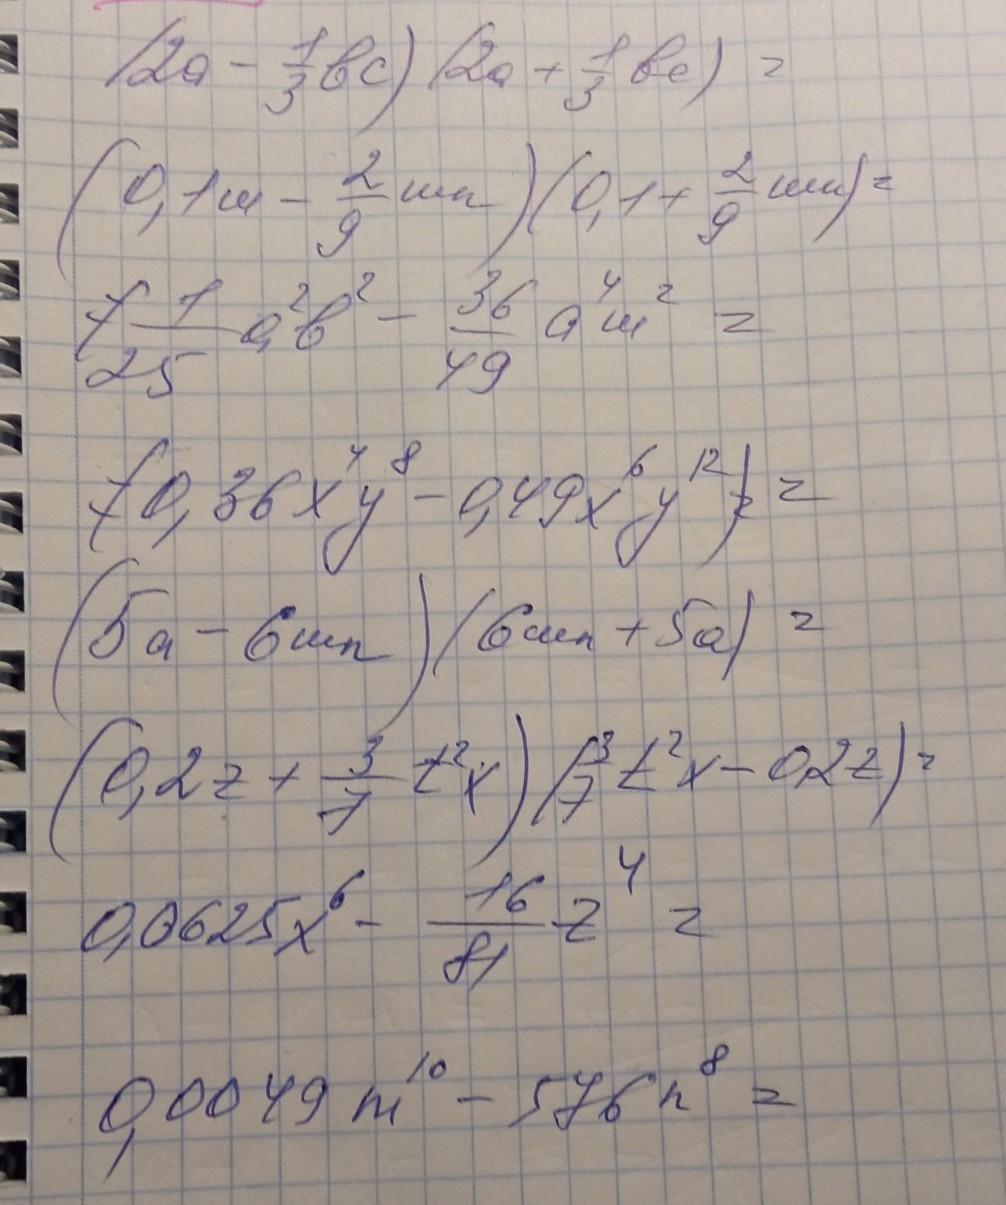 (2a - 1/3 bc) (2a + 1/3 bc) =
(0,1m - 2/9 mn) (0,1 + 2/9 mn) =
7 1/25 a²b² - 36/49 a⁴m² =
(0,36x⁴y⁸ - 0,49x⁶y¹²) =
(5a - 6mn) (6mn + 5a) =
(0,2z + 3/7 t²x) (3/7 t²x - 0,2z) =
0,0625x⁶ - 16/81 z⁴ =
0,0049m¹⁰ - 576n⁸ =